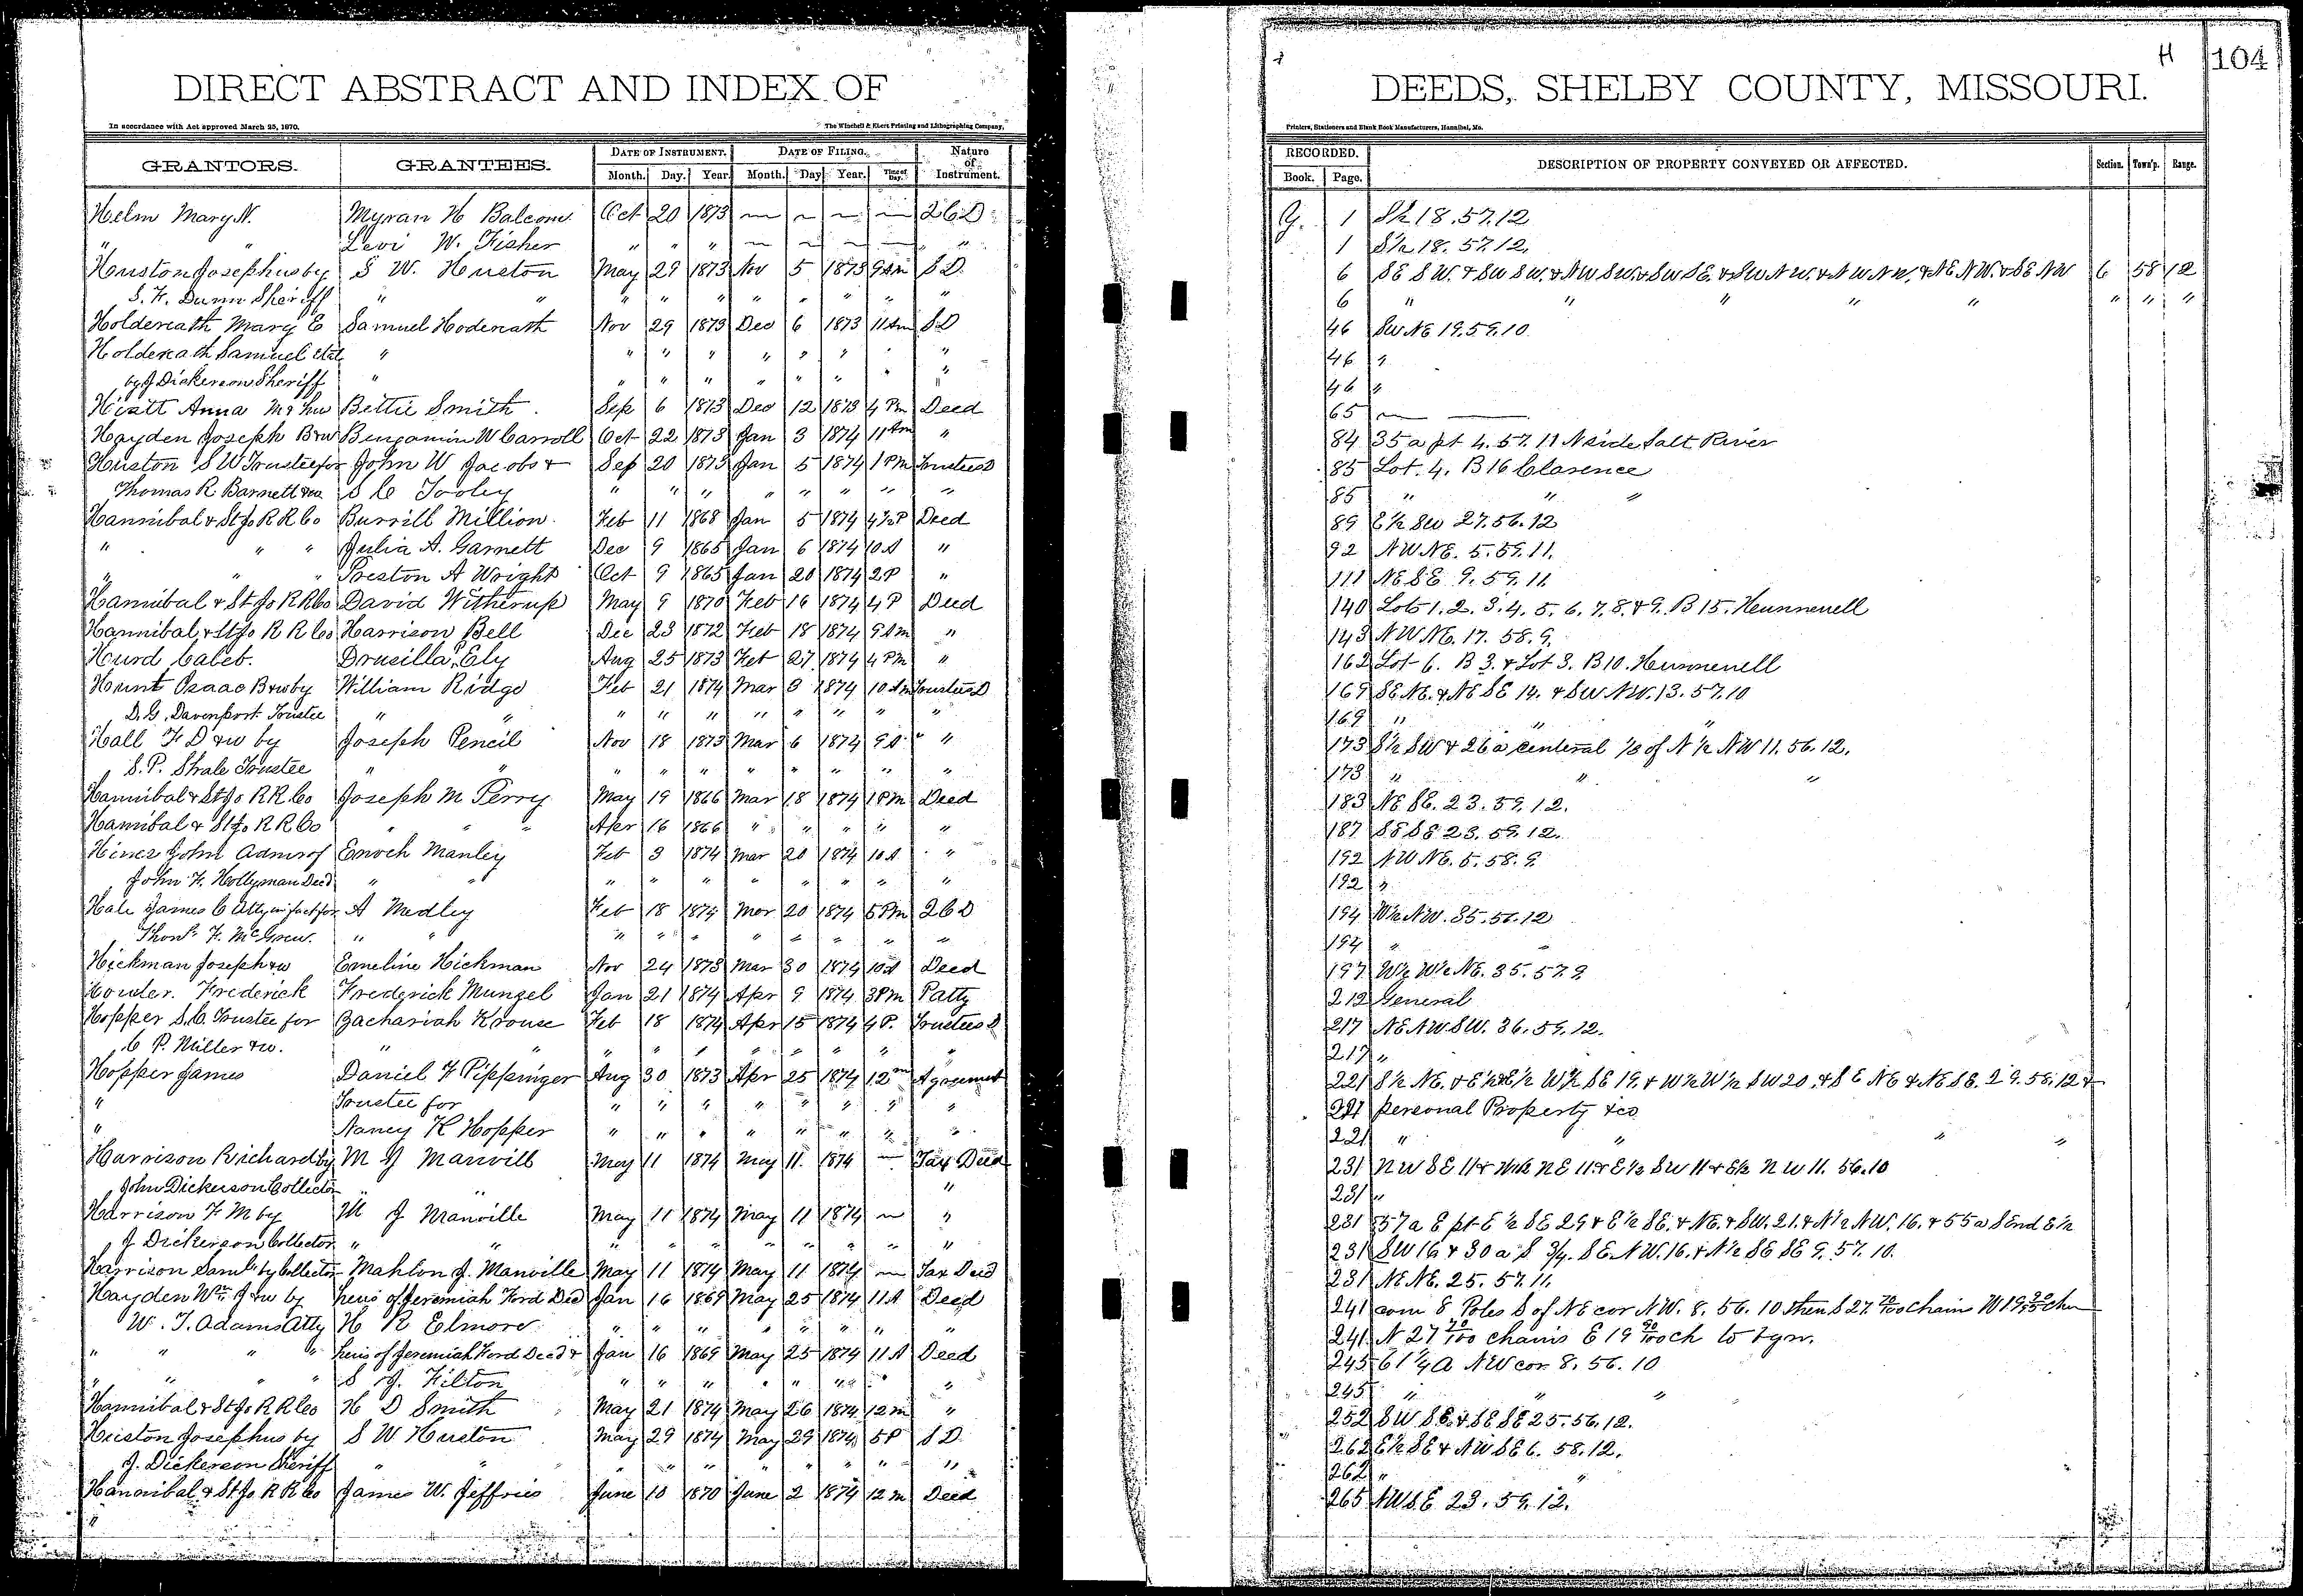 H 104
DIRECT ABSTRACT AND INDEX OF DEEDS, SHELBY COUNTY, MISSOURI.
In accordance with Act approved March 25, 1870. The Winchell & Ebert Printing and Lithographing Company, Printers, Stationers and Blank Book Manufacturers, Hannibal, Mo.
GRANTORS. GRANTEES. DATE OF INSTRUMENT. DATE OF FILING. Nature of Instrument. RECORDED. DESCRIPTION OF PROPERTY CONVEYED OR AFFECTED. Section. Town'p. Range.
Month. Day. Year. Month. Day. Year. Time of Day. Book. Page.
Helm Mary N. Myran H Balcom Oct 20 1873 — — — — 2 C D Y. 1 S½ 18.57.12
" " Levi W. Fisher " " " — — — — " 1 S½ 18.57.12.
Huston Josephus by S W. Huston May 29 1873 Nov 5 1873 9 Am S D. 6 SE SW. & SW SW. & NW SW. & SW SE. & SW NW. & NW NW. & NE NW. & SE NW 6 58 12
S. F. Dunn Sheriff " " " " " " " " " " 6 " " " " " " " "
Holdereath Mary E Samuel Hodereath Nov 29 1873 Dec 6 1873 11 Am S D 46 SW NE 19.59.10
Holdereath Samuel etal " " " " " " " " " 46 "
by J Dickerson Sheriff " " " " " " " " " 46 "
Hiatt Anna M & hus Bettie Smith Sep 6 1873 Dec 12 1873 4 Pm Deed 65 — —
Hayden Joseph B & w Benjamin W Carroll Oct 22 1873 Jan 3 1874 11 Am " 84 35 a pt 4.57.11 N side Salt River
Huston S W Trustee for John W Jacobs & Sep 20 1873 Jan 5 1874 1 PM Trustees D 85 Lot. 4. B 16 Clarence
Thomas R Barnett & w S C Tooley " " " " " " " " 85 " " "
Hannibal & St Jo R R Co Burrill Million Feb 11 1868 Jan 5 1874 4½ P Deed 89 E½ SW 27.56.12
" " " Julia A. Garnett Dec 9 1865 Jan 6 1874 10 A " 92 NW NE. 5.59.11.
" " " Preston A Wright Oct 9 1865 Jan 20 1874 2 P " 111 NE SE 9.59.11
Hannibal & St Jo R R Co David Witherup May 9 1870 Feb 16 1874 4 P Deed 140 Lots 1.2.3.4.5.6.7.8.& 9. B 15. Hunnewell
Hannibal & St Jo R R Co Harrison Bell Dec 23 1872 Feb 18 1874 9 Am " 143 NW NE. 17.58.9.
Hurd Caleb. Drusilla Ely Aug 25 1873 Feb 27 1874 4 PM " 162 Lot 6. B 3. & Lot 3. B 10. Hunnewell
Hunt Isaac B & w by William Ridge Feb 21 1874 Mar 3 1874 10 Am Trustees D 169 SE NE. & NE SE 14. & SW NW. 13.57.10
D. G. Davenport Trustee " " " " " " " " " " 169 " " "
Hall F D & w by Joseph Pencil Nov 18 1873 Mar 6 1874 9 A. " " 173 S½ SW & 26 a central 1/3 of N½ NW 11.56.12.
S. P. Strale Trustee " " " " " " " " " " 173 " " "
Hannibal & St Jo R R Co Joseph M Perry May 19 1866 Mar 18 1874 1 PM Deed 183 NE SE. 23.59.12.
Hannibal & St Jo R R Co " " " Apr 16 1866 " " " " " 187 SE SE 23.59.12.
Hines John Admr of Enoch Manley Feb 3 1874 Mar 20 1874 10 A " 192 NW NE. 5.58.9.
John F. Hollyman Decd " " " " " " " " " " 192 "
Hale James C Atty in fact for A Medley Feb 18 1874 Mar 20 1874 5 PM 2 C D 194 W½ NW. 35.56.12
Thos. F. McGrew. " " " " " " " " " " 194 " "
Hickman Joseph & w Emeline Hickman Nov 24 1873 Mar 30 1874 10 A Deed 197 W½ W½ NE. 35.57.9
Frederick Frederick Munzel Jan 21 1874 Apr 9 1874 3 Pm Patty 212 General
Hopper S. C. Trustee for Zachariah Krouse Feb 18 1874 Apr 15 1874 4 P. Trustees D 217 NE NW. SW. 36.59.12.
C P. Miller & w. " " " " " " " " " " 217 "
Hopper James Daniel F Pippinger Aug 30 1873 Apr 25 1874 12 m Agreement 221 S½ NE. & E½ & E½ W½ SE 19. & W½ W½ SW 20. & SE NE & NE SE. 29.58.12 &
" Trustee for " " " " " " " " 221 personal Property &co
" Nancy K Hopper " " " " " " " " 221 " " " "
Harrison Richard by M J Manvill May 11 1874 May 11. 1874 — Tax Deed 231 NW SE 11 & W½ NE 11 & E½ SW 11 & E½ NW 11. 56.10
John Dickerson Collector " " " 231 "
Harrison F M by M J Manville May 11 1874 May 11 1874 — " 231 57 a E pt E½ SE 29 & E½ SE. & NE. & SW. 21. & N½ NW. 16. & 55 a S end E½
J Dickerson Collector " " " " " " " " " " 231 SW 16 & 30 a S 3/4. SE NW. 16. & N½ SE SE 9. 57. 10.
Harrison Saml by Collector Mahlon J. Manville May 11 1874 May 11 1874 — Tax Deed 231 NE NE. 25.57.11.
Hayden Wm J & w by heirs of Jeremiah Ford Decd Jan 16 1869 May 25 1874 11 A Deed 241 com 8 Poles S of NE cor NW. 8. 56. 10 then S 27 70/100 chains W 19 chn
W. J. Adams Atty H R Elmore " " " " " " " " 241 N 27 70/100 chains E 19 90/100 ch to bgn.
" " " " heirs of Jeremiah Ford Decd & Jan 16 1869 May 25 1874 11 A Deed 245 61 1/4 a NW cor 8. 56. 10
" " " " S J. Tilton " " " " " " " " 245 " " "
Hannibal & St Jo R R Co H D Smith May 21 1874 May 26 1874 12 m " 252 SW SE. & SE SE 25.56.12.
Huston Josephus by S W Huston May 29 1874 May 29 1874 5 P S D 262 E½ SE & NW SE 6. 58.12.
J. Dickerson Sheriff " " " " " " " " " " 262 " "
Hannibal & St Jo R R Co James W. Jeffries June 10 1870 June 2 1874 12 m Deed 265 NW SE 23.59.12.
"